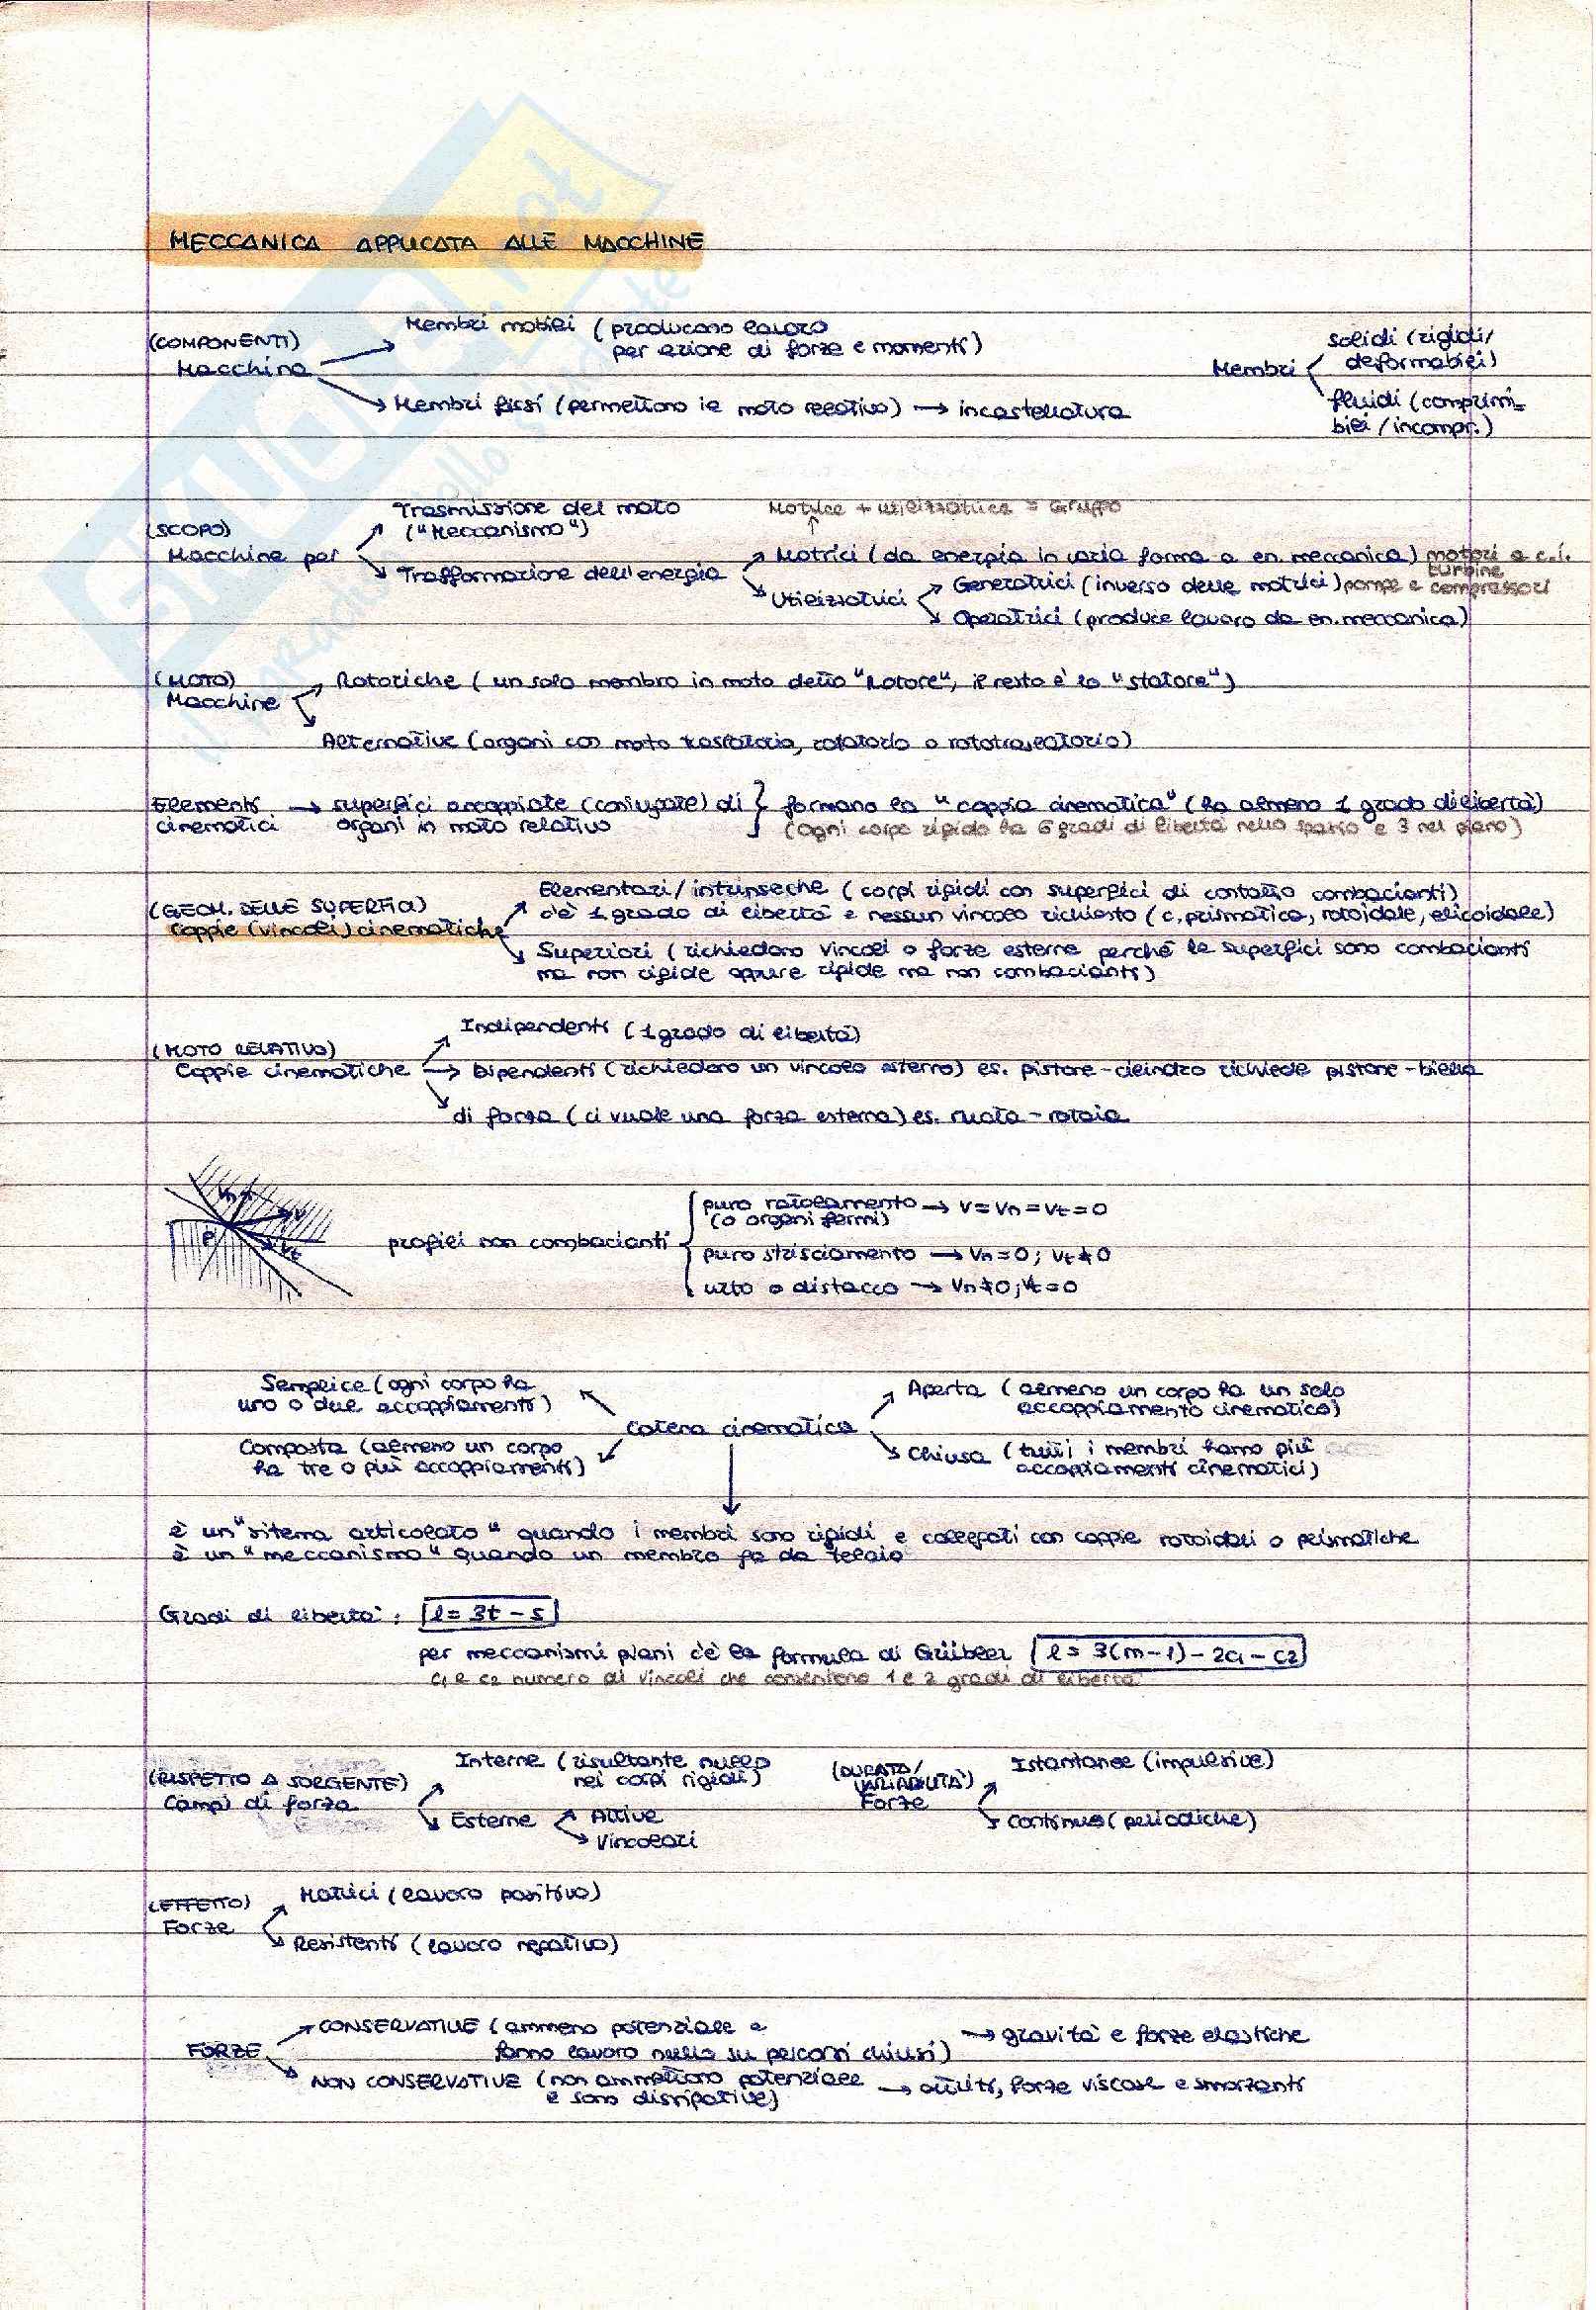 MECCANICA APPLICATA ALLE MACCHINE
(COMPONENTI)
Macchina
Membri mobili (producano lavoro
per azione di forze e momenti)
Membri fissi (permettono il moto relativo) → incastellatura
Membri
solidi (rigidi/
deformabili)
fluidi (comprimi-
bili/incompr.)
(SCOPO)
Macchine per
Trasmissione del moto
("Meccanismo")
Trasformazione dell'energia
Motrice + utilizzatrice = Gruppo
Motrici (da energia in varia forma a en. meccanica) motori a c.i.
turbine
Utilizzatrici
Generatrici (inverso delle motrici) pompe e compressori
Operatrici (produce lavoro da en. meccanica)
(MOTO)
Macchine
Rotoriche (un solo membro in moto detto "Rotore", il resto è lo "statore")
Alternative (organi con moto traslatorio, rotatorio o rototraslatorio)
Elementi → superfici accoppiate (coniugate) di } formano la "coppia cinematica" (ha almeno 1 grado di libertà)
cinematici organi in moto relativo (ogni corpo rigido ha 6 gradi di libertà nello spazio e 3 nel piano)
(GEOM. DELLE SUPERFICI)
Coppie (vincoli) cinematiche
Elementari/intrinseche (corpi rigidi con superfici di contatto combacianti)
c'è 1 grado di libertà e nessun vincolo richiesto (c. prismatica, rotoidale, elicoidale)
Superiori (richiedono vincoli o forze esterne perché le superfici sono combacianti
ma non rigide oppure rigide ma non combacianti)
(MOTO RELATIVO)
Coppie cinematiche
Indipendenti (1 grado di libertà)
Dipendenti (richiedono un vincolo esterno) es. pistone-cilindro richiede pistone-biella
di forza (ci vuole una forza esterna) es. ruota-rotaia
Vn
V
P
Vt
profili non combacianti
puro rotolamento → V=Vn=Vt=0
(o organi fermi)
puro strisciamento → Vn=0; Vt≠0
urto o distacco → Vn≠0; Vt=0
Semplice (ogni corpo ha
uno o due accoppiamenti)
Composta (almeno un corpo
ha tre o più accoppiamenti)
Catena cinematica
Aperta (almeno un corpo ha un solo
accoppiamento cinematico)
Chiusa (tutti i membri hanno più
accoppiamenti cinematici)
è un "sitema articolato" quando i membri sono rigidi e collegati con coppie rotoidali o prismatiche
è un "meccanismo" quando un membro fa da telaio
Gradi di libertà: l = 3t - s
per meccanismi piani c'è la formula di Grübler l = 3(m-1) - 2c1 - c2
c1 e c2 numero di vincoli che consentono 1 e 2 gradi di libertà
(RISPETTO A SORGENTE)
Campi di forza
Interne (risultante nullo
nei corpi rigidi)
Esterne
Attive
Vincolari
(DURATA/
VARIABILITÀ)
Forze
Istantanee (impulsive)
Continue (periodiche)
(EFFETTO)
Forze
Motrici (lavoro positivo)
Resistenti (lavoro negativo)
FORZE
CONSERVATIVE (ammeno potenziale e
fanno lavoro nullo su percorsi chiusi) → gravità e forze elastiche
NON CONSERVATIVE (non ammettono potenziale
e sono dissipative) → attriti, forze viscose e smorzanti